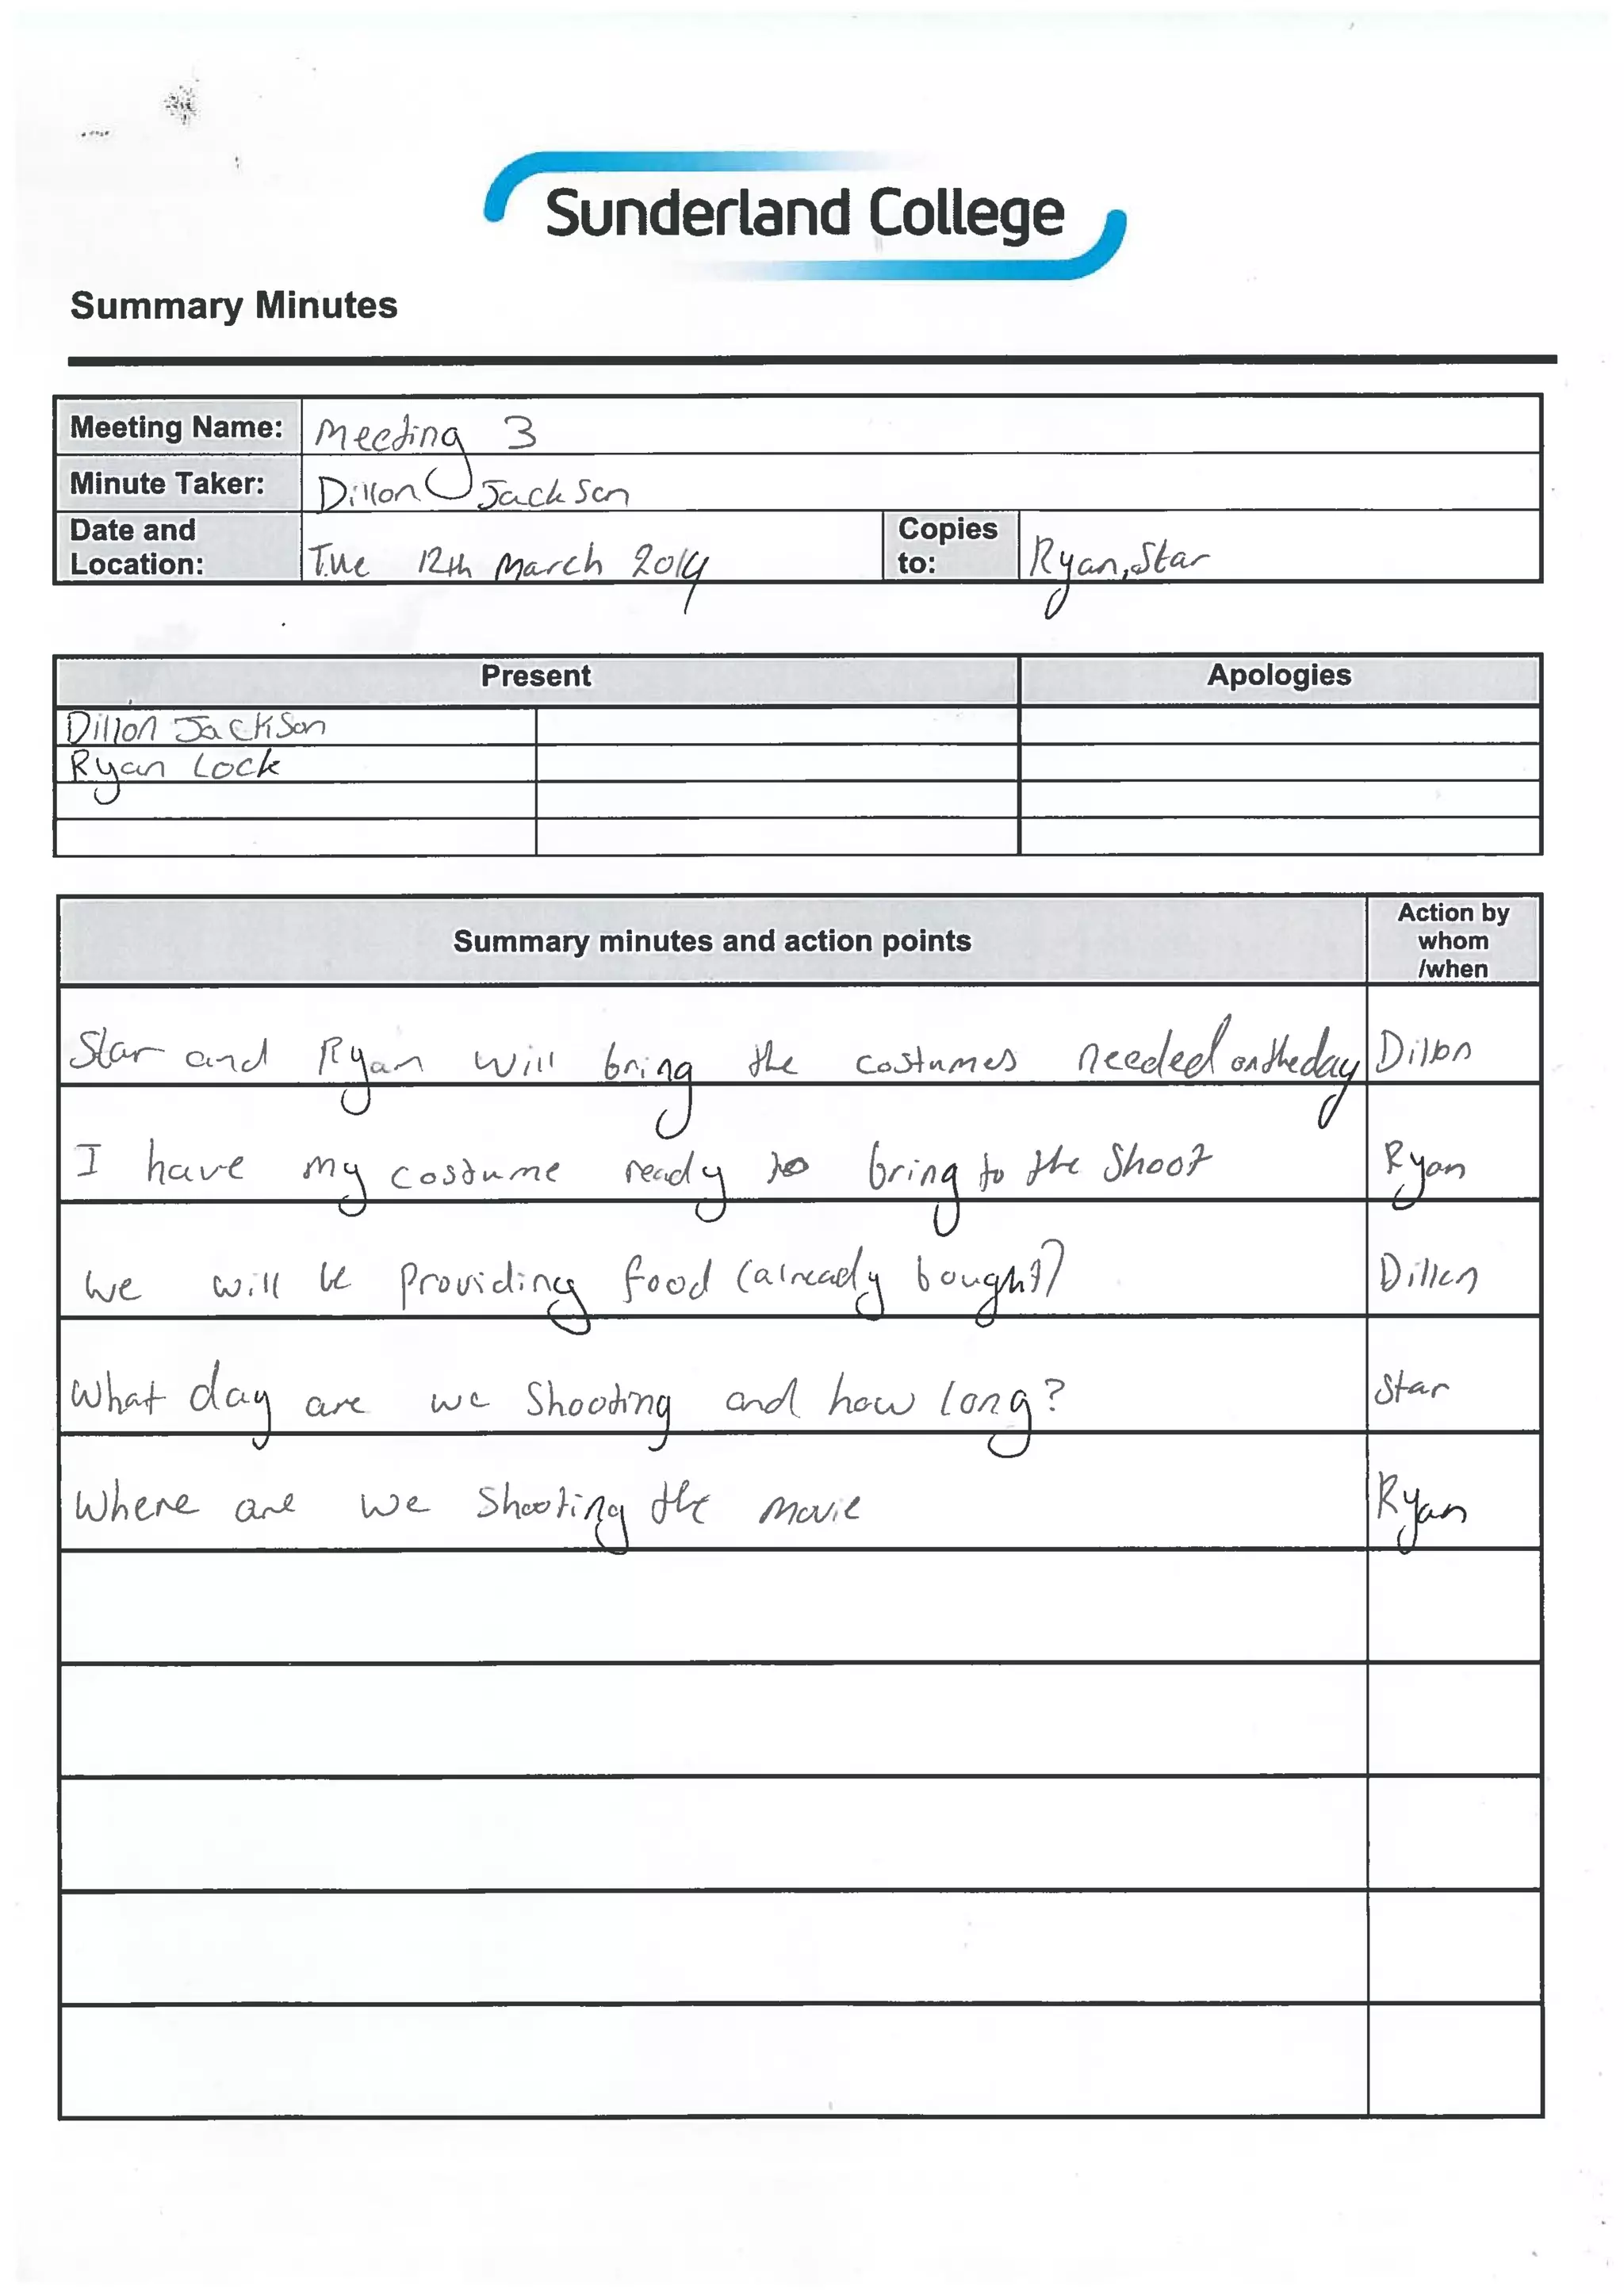 Sunderland College
Summary Minutes
Meeting Name: Meeting 3
Minute Taker: Dillon Jackson
Date and Location: Tue 12th March 2014 Copies to: Ryan, Star
Present Apologies
Dillon Jackson
Ryan Lock
Summary minutes and action points Action by whom /when
Star and Ryan will bring the costumes needed on the day Dillon
I have my costume ready to bring to the shoot Ryan
we will be Providing food (already bought) Dillon
What day are we shooting and how long? Star
Where are we shooting the movie Ryan